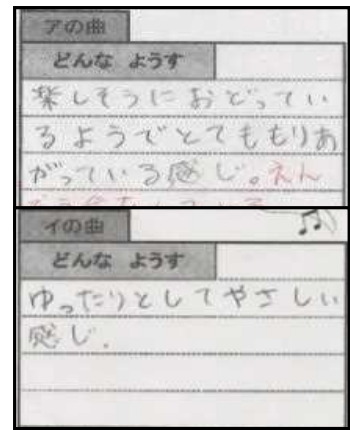 アの曲
どんな ようす
楽しそうにおどってい
るようでとてももりあ
がっている感じ。えん
イの曲
どんな ようす
ゆったりとしてやさしい
感じ.